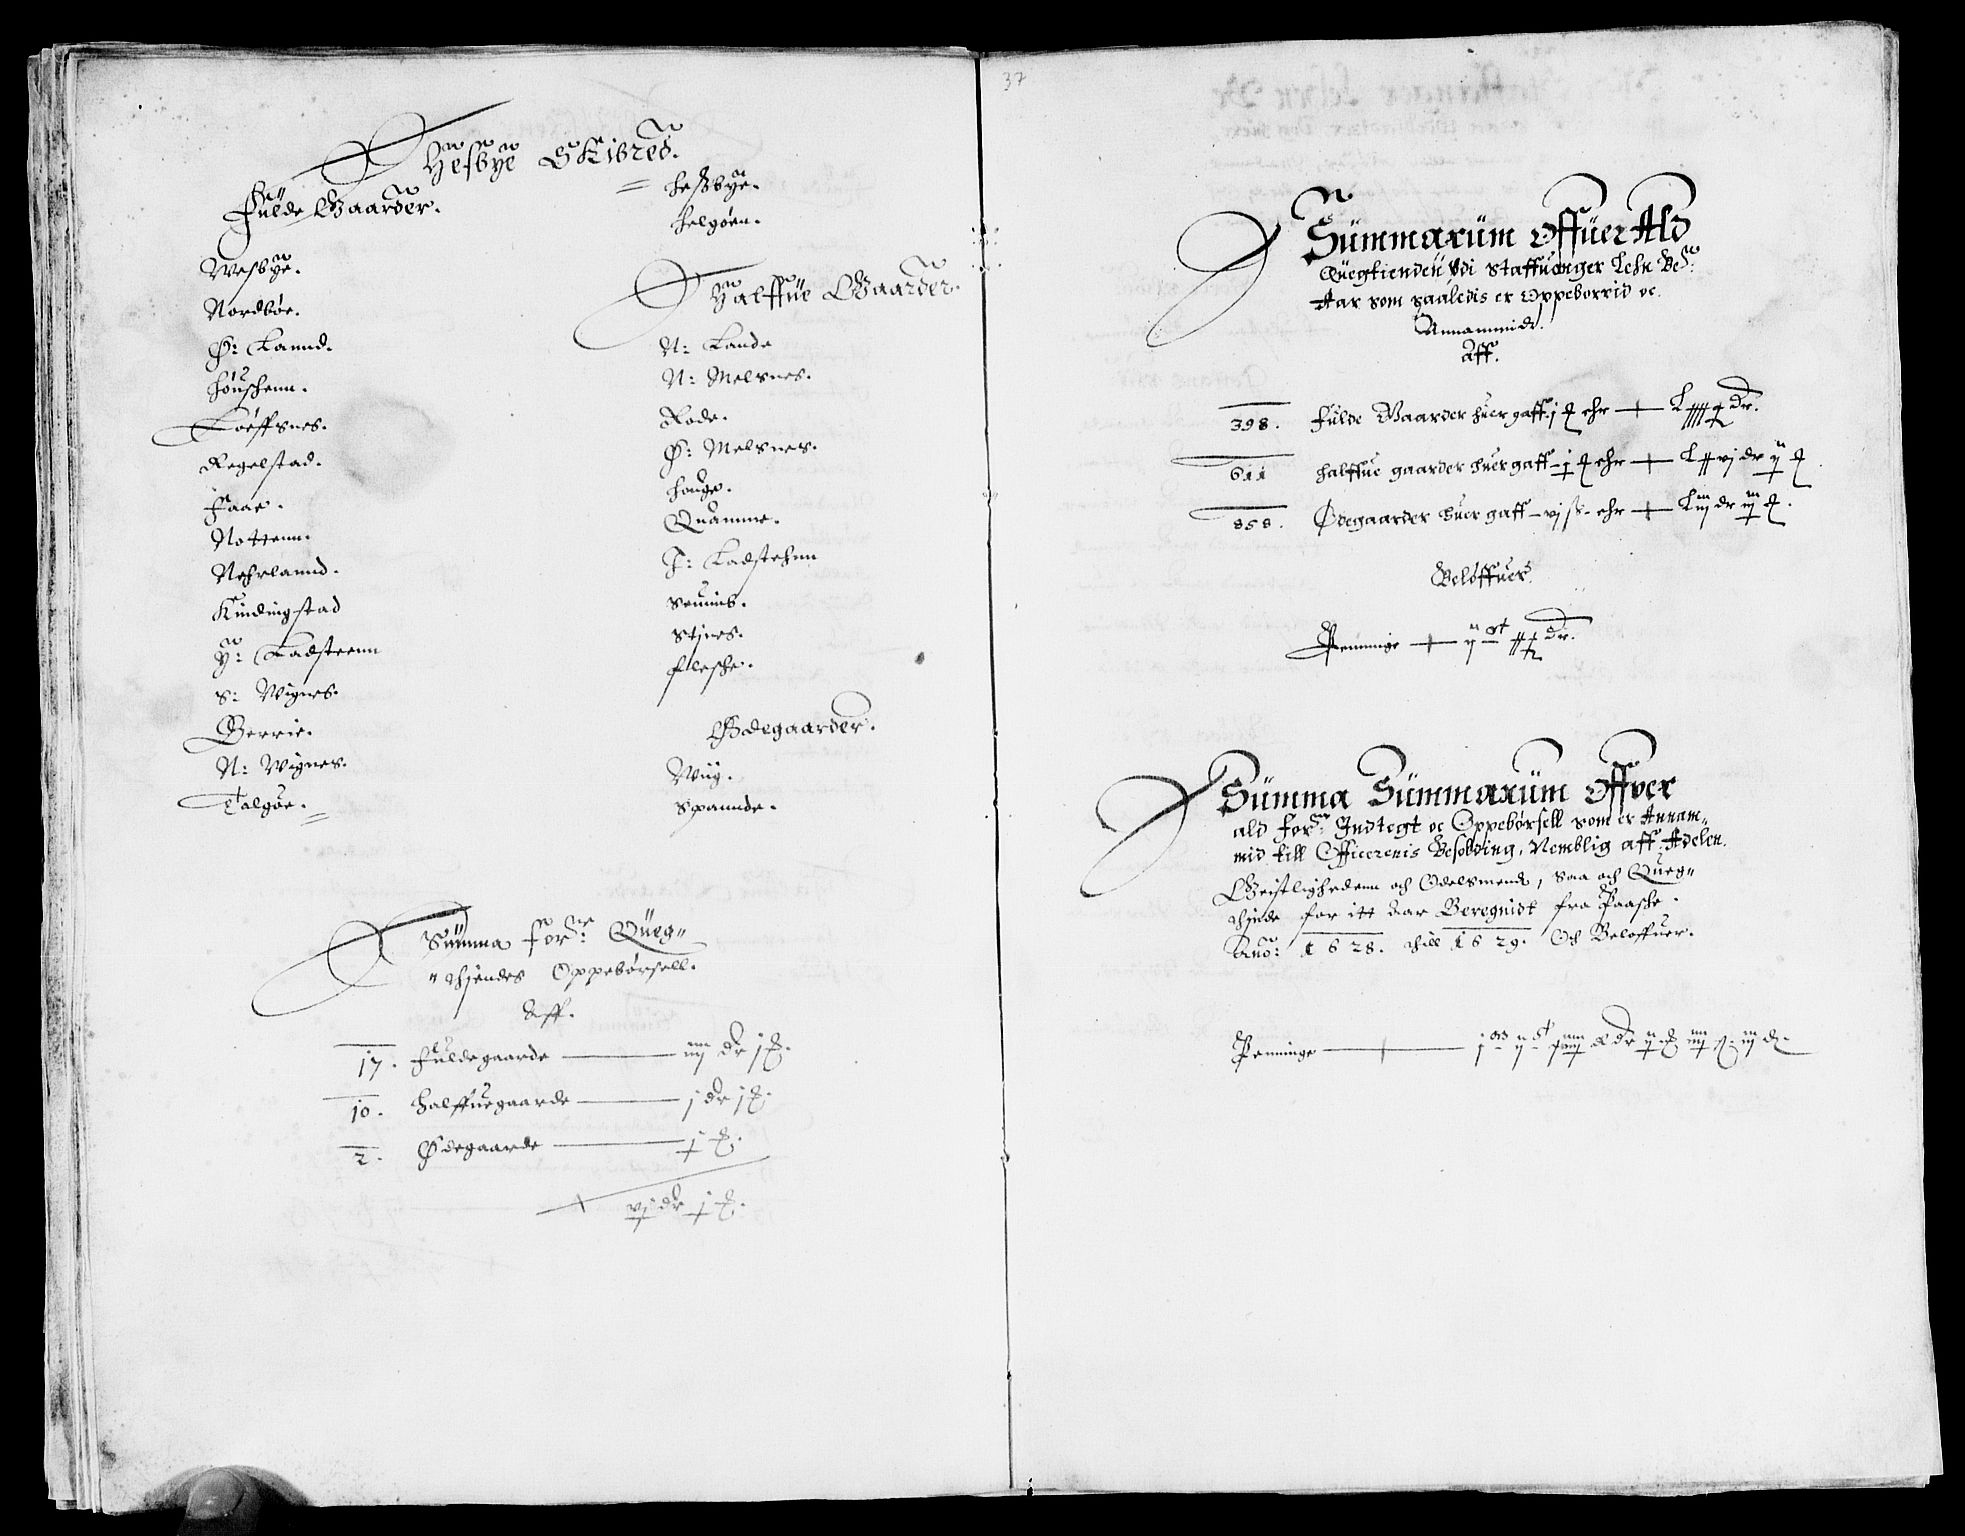 Hesbye Skibred.
Fulde Gaarder.
Wesbye.
Nordbøe.
Ø: Lannd.
Høüshenn.
Løeffsnes.
Regelstad.
Faae.
Nottenn.
Nehrlannd.
Kindingstad
Y: Ladsteenn
S: Wignes.
Berrie.
N: Wignes.
Talgøe.
Hessbye.
Helgøen.
Halffue Gaarder.
N: Lande
N: Melsnes.
Rode.
Ø: Melsnes.
Houge.
Quamme.
I: Ladstehnn
Stjnes.
Flesche.
Ødegaarder.
Wiig.
Spannde.
Summa for:ne Queg=
= thjendes Oppebørsell.
Aff.
17. Fuldegaarde — iiij dr j
10. Halffuegaarde — j dr j
2. Ødegaarde
vj dr
37
Summarum Offuer Ald
Quegtienden Udi Staffuanger Lehn Be:te
Aar som saaledis er Oppeborrid oc
Annammide.
Aff.
398. Fulde Gaarder huer gaff ehr dr.
611 halffue gaarder huer gaff ehr
858. Ødegaarder huer gaff vj ß ehr
Beløffuer
Penninge dr.
Summa Summarum Offver
ald for:ne Indtegt oc Oppebørsell som er Annam=
mid till Officerenis Besolding, Nemblig aff Adelen.
Geistlighedenn och Odelsmend, saa och Queg=
thjende for itt Aar Beregnidt fra Paasche.
Ano: 1628. thill 1629. Och Beløffuer.
Penninge